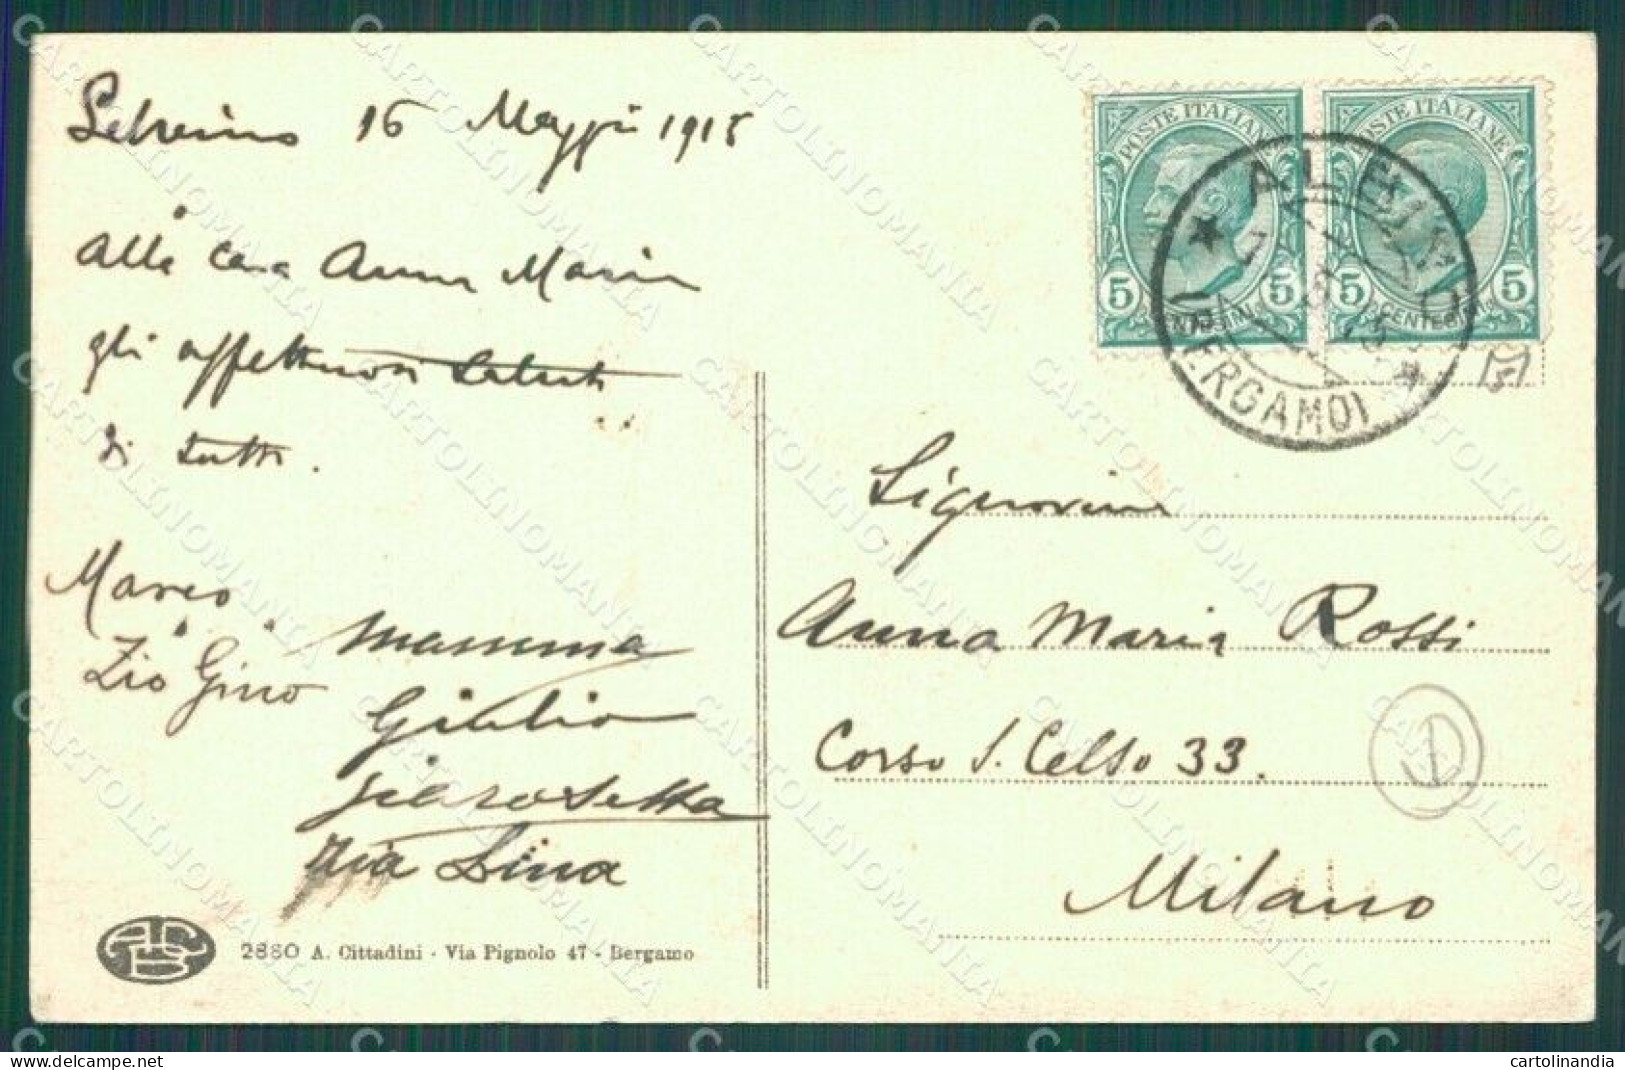 Selvino 16 Maggio 1915
Alla cara Anna Maria
gli affettuosi saluti
di tutti.
Marco
Zio Gino
mamma
Giulio
Zia Lina
2880 A. Cittadini - Via Pignolo 47 - Bergamo
POSTE ITALIANE
5 CENTESIMI 5
POSTE ITALIANE
5 CENTESIMI 5
ALBINO
(BERGAMO)
Signorina
Anna Maria Rossi
Corso S. Celso 33.
Milano
CARTOLINOMANIA
cartolinandia